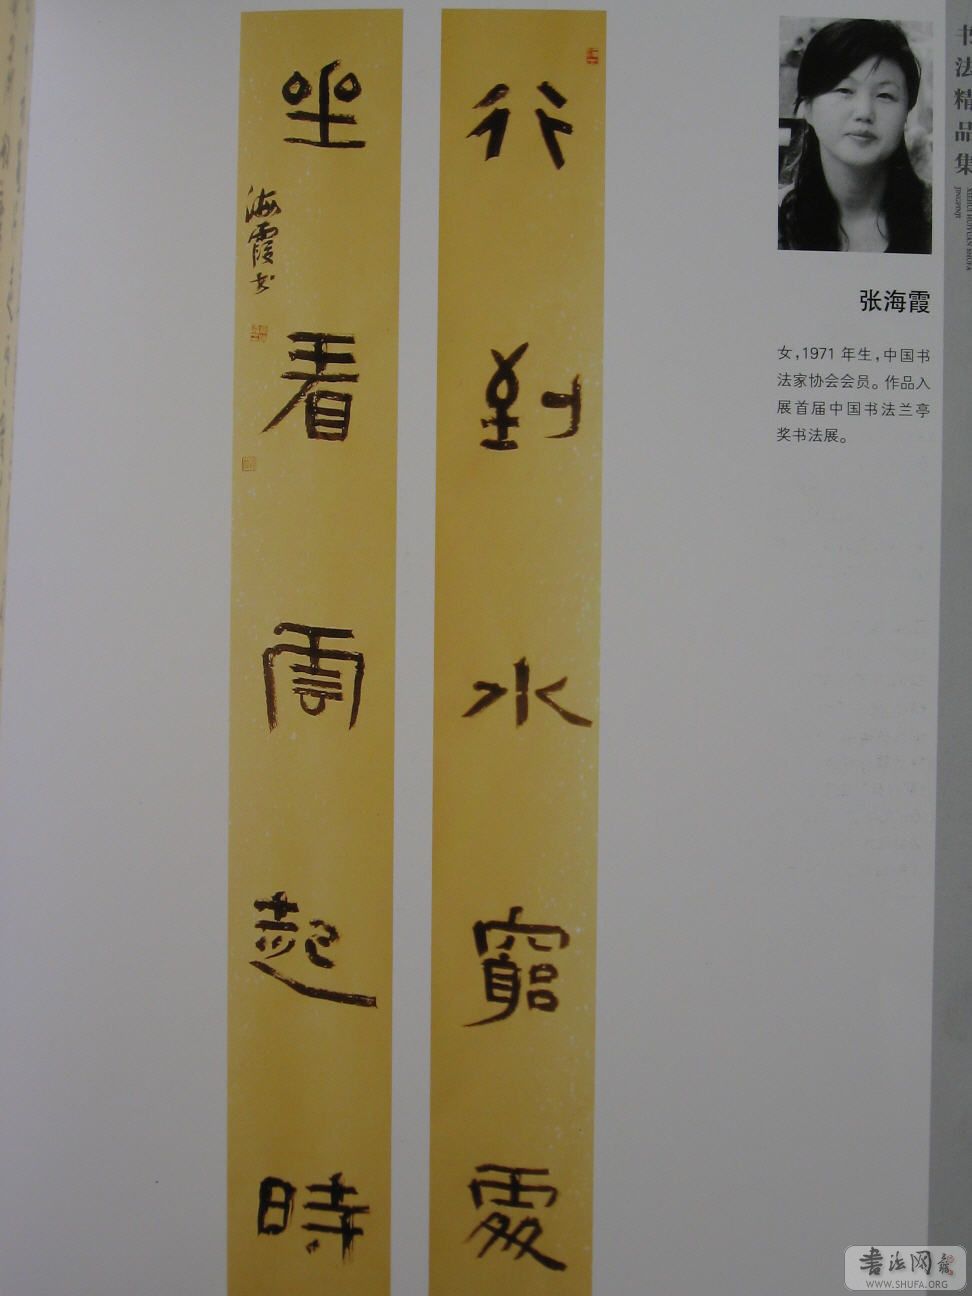 行到水窮處
坐看雲起時
海霞书
张海霞
女，1971 年生，中国书
法家协会会员。作品入
展首届中国书法兰亭
奖书法展。
书法精品集
书法网
WWW.SHUFA.ORG